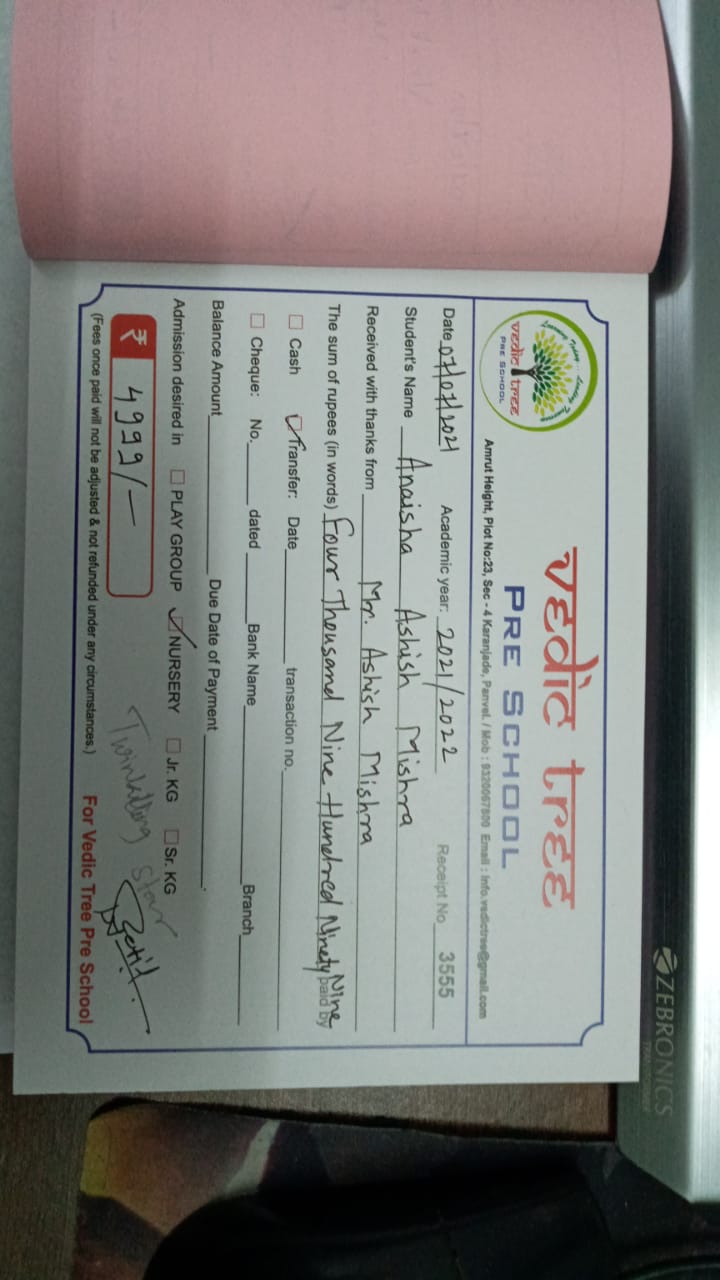 vedic tree
PRE SCHOOL
vedic tree
PRE SCHOOL
Amrut Height, Plot No:23, Sec - 4 Karanjade, Panvel. / Mob : 9320067800 Email : info.vedictree@gmail.com
Date 07/07/2021 Academic year: 2021/2022 Receipt No 3555
Student's Name Anaisha Ashish Mishra
Received with thanks from Mr. Ashish Mishra
The sum of rupees (in words) Four Thousand Nine Hundred Ninety Nine paid by
Cash Transfer: Date transaction no.
Cheque: No. dated Bank Name Branch
Balance Amount Due Date of Payment
Admission desired in PLAY GROUP NURSERY Jr. KG Sr. KG
₹ 4999/-
Twinkling Star
(Fees once paid will not be adjusted & not refunded under any circumstances.) For Vedic Tree Pre School
ZEBRONICS